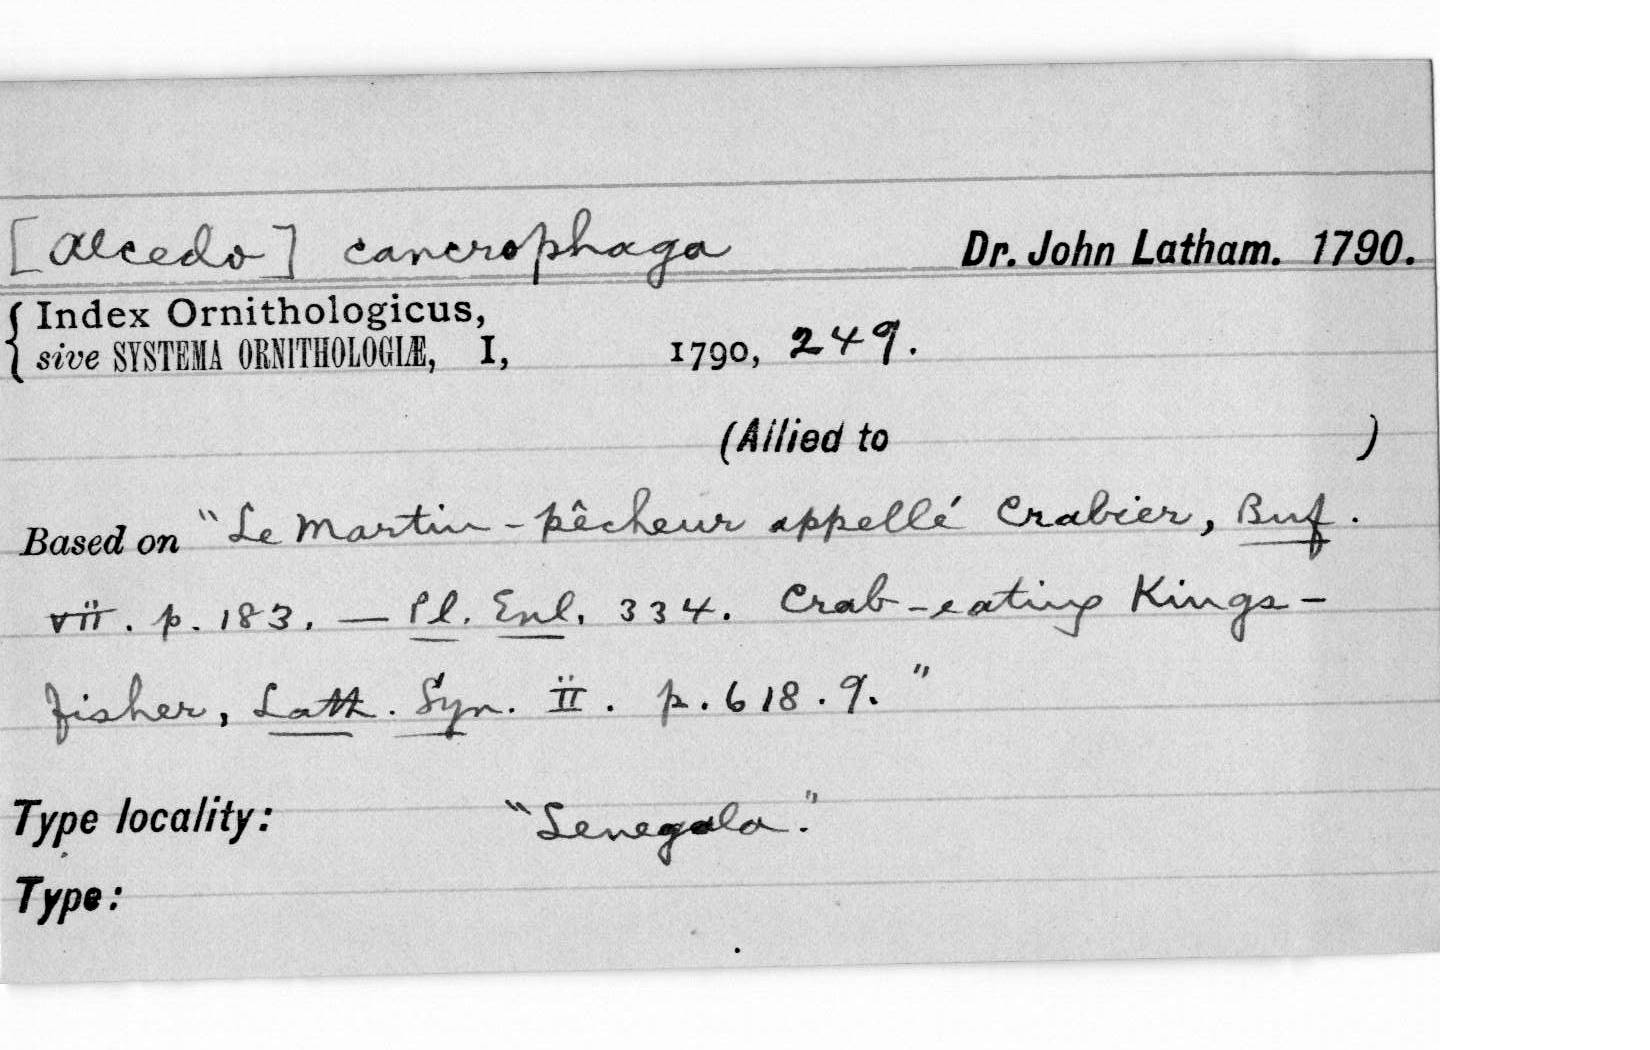 [Alcedo] cancrophaga Dr. John Latham. 1790.
Index Ornithologicus,
sive SYSTEMA ORNITHOLOGIÆ, I, 1790, 249.
(Allied to )
Based on "Le Martin-pêcheur appellé Crabier, Buf.
vii. p. 183. — Pl. Enl. 334. Crab-eating Kings-
fisher, Lath. Syn. ii. p. 618. 9."
Type locality: "Senegala."
Type: